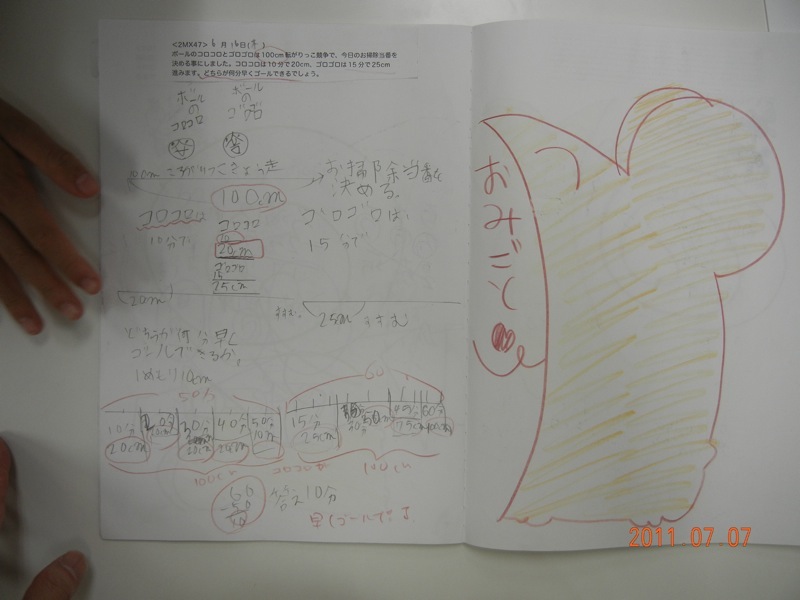 <2MX47> 6月16日(木)
ボールのコロコロとゴロゴロは100cm転がりっこ競争で、今日のお掃除当番を
決める事にしました。コロコロは10分で20cm、ゴロゴロは15分で25cm
進みます。どちらが何分早くゴールできるでしょう。
ボール
の
コロコロ
ボール
の
ゴロゴロ
100cm
お掃除当番を
決める。
コロコロは
10分で
コロコロ
20cm
ゴロゴロ
25cm
ゴロゴロは
15分で
20cm
すすむ。
25cm すすむ
どちらが何分早く
ゴールできるか。
1めもり10cm
50分
10分
20cm
30分
40分
50分
60
15分
25cm
45分
75cm
60分
100cm
コロコロが
100cm
60
-50
10
答え10分
早くゴールだよ
おみごと
2011.07.07